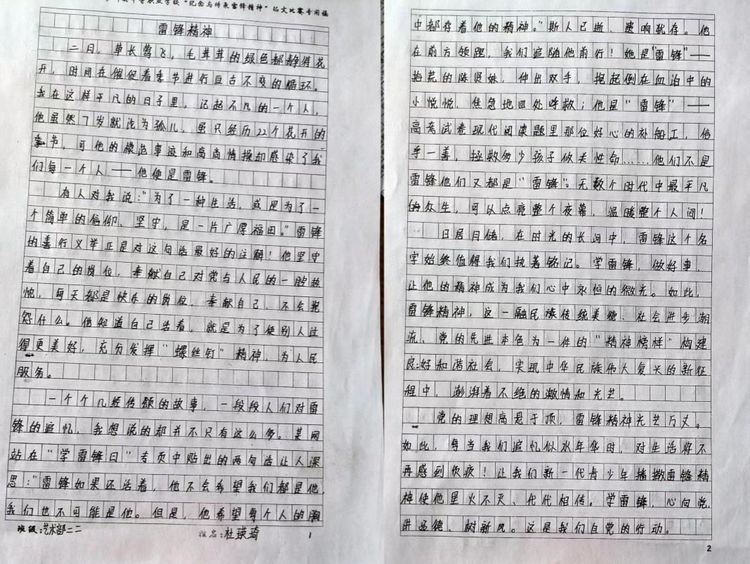 "纪念与传承雷锋精神"征文比赛专用稿
雷锋精神
二月，草长莺飞，毛茸茸的绿色都静得花
开，时间在催促着季节进行亘古不变的循环。
我在这样平凡的日子里，记起不凡的一个人，
他虽然7岁就沦为孤儿，虽只经历22个花开的
季节，可他的模范事迹和高尚情操却感染了我
们每一个人——他便是雷锋。
有人对我说："为了一种生活，或是为了一
个简单的信仰、坚守，是一片广厚福田。"雷锋
的善行义举正是对这句话最好的注解！他坚守
着自己的岗位，奉献自己对党与人民的一腔赤
忱，每天都是快乐的岗位，奉献自己，不会抱
怨什么。他知道自己活着，就是为了使别人过
得更美好，充分发挥"螺丝钉"精神，为人民
服务。
一个个几经传颂的故事，一段段人们对雷
锋的追忆，我想说的却并不只有这么多。某网
站在"学雷锋日"专页中贴出的两句话让人深
思："雷锋如果还活着，他不会希望我们都是他，
我们也不可能是他。但是，他希望每个人的胸
班级：艺术部二二 姓名：杜瑛琦 1
中都存着他的精神。"斯人已逝，遗响犹存。他
在前方领跑，我们追随他前行！她是"雷锋"——
拾荒的陈贤妹，伸出双手，抱起倒在血泊中的
小悦悦，焦急地四处呼救；他是"雷锋"——
高考试卷现代阅读题里那位好心的补船工，偶
举一善，拯救匆少孩子攸关性命……他们不是
雷锋他们又都是"雷锋"。无数个时代中最平凡
的众生，可以点亮整个夜幕，温暖整个人间！
日居月储，在时光的长河中，雷锋这个名
字始终值得我们执着铭记。学雷锋，做好事，
让他的精神成为我们心中永恒的微光。如此，
雷锋精神，这一融民族传统美德、社会进步潮
流、党的先进本色为一体的"精神榜样"构建
良好和谐社会，实现中华民族伟大复兴的新征
程中，澎湃着不绝的激情和光芒。
党的理想高悬于顶，雷锋精神光芒万丈。
如此，每当我们追忆似水年华时，对生活将不
再感到疲惫！让我们新一代青少年播撒雷锋精
神使他星火不灭、代代相传。学雷锋，心向党，
讲品德、树新风。这是我们自觉的行动。
2